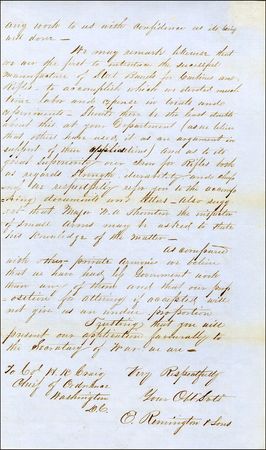 any work to us with confidence as to being
well done —
We may remark likewise that
we are the first to introduce the successful
manufacture of Steel Barrels for Carbines and
Rifles — to accomplish which we devoted much
time labor and expense in trials and
experiments — Should there be the least doubt
of this at your Department (as we learn
that others have used it as an argument in
support of their applications) and as to the
great superiority over iron for Rifles both
as regards strength durability and safety
We respectfully refer you to the accompa
nying documents and letters — also sugg
est that Major W. A. Thornton the inspector
of small Arms may be asked to state
his knowledge of the matter —
As compared
with other private Armories we believe
that we have had less Government work
than any of them and that our prop
osition for altering if accepted will
not give us an undue proportion
Trusting that you will
present our application favorably to
the Secretary of War we are —
To Col H. K. Craig Very Respectfully
Chief of Ordnance Your Obt Svts
Washington
D.C. E. Remington & Sons